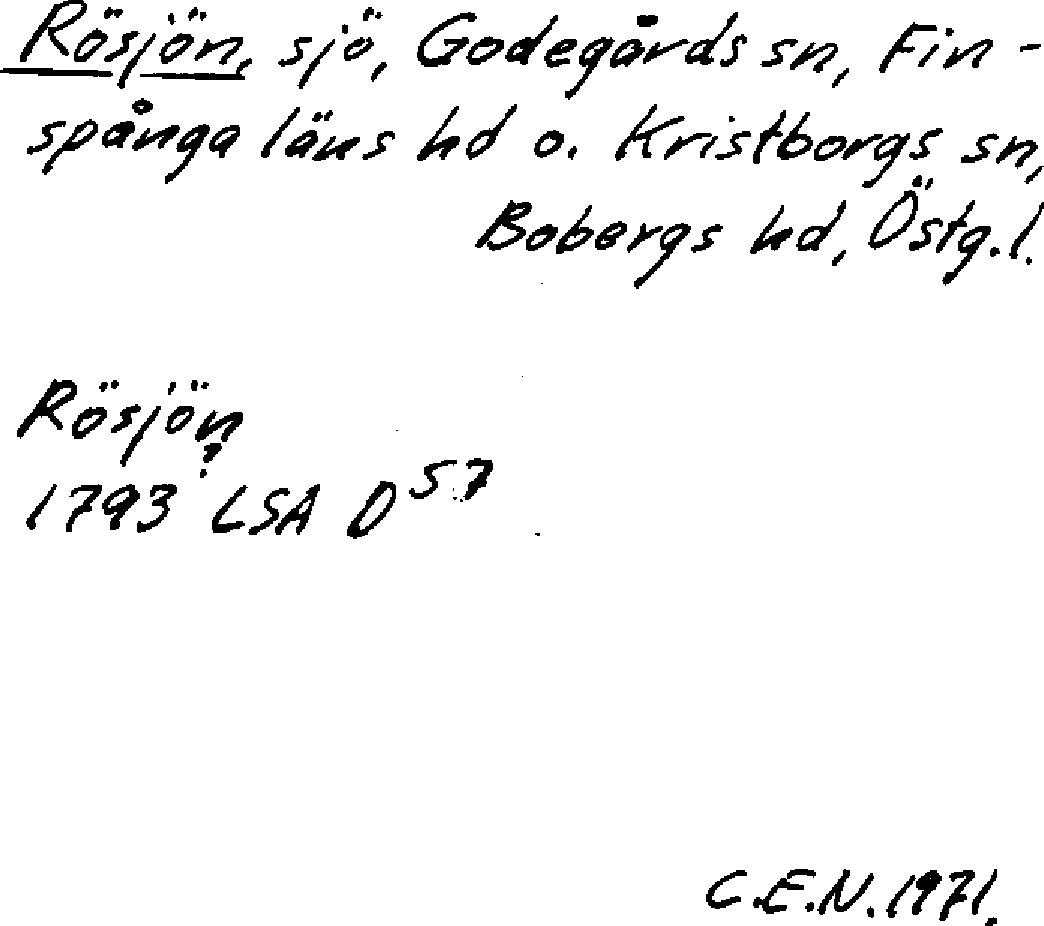 Rösjön, sjö, Godegårds sn, Fin-
spånga läns hd o. Kristborgs sn,
Bobergs hd, Östg.l.
Rösjön
?
1793 LSA D 57
C.E.N. 1971.